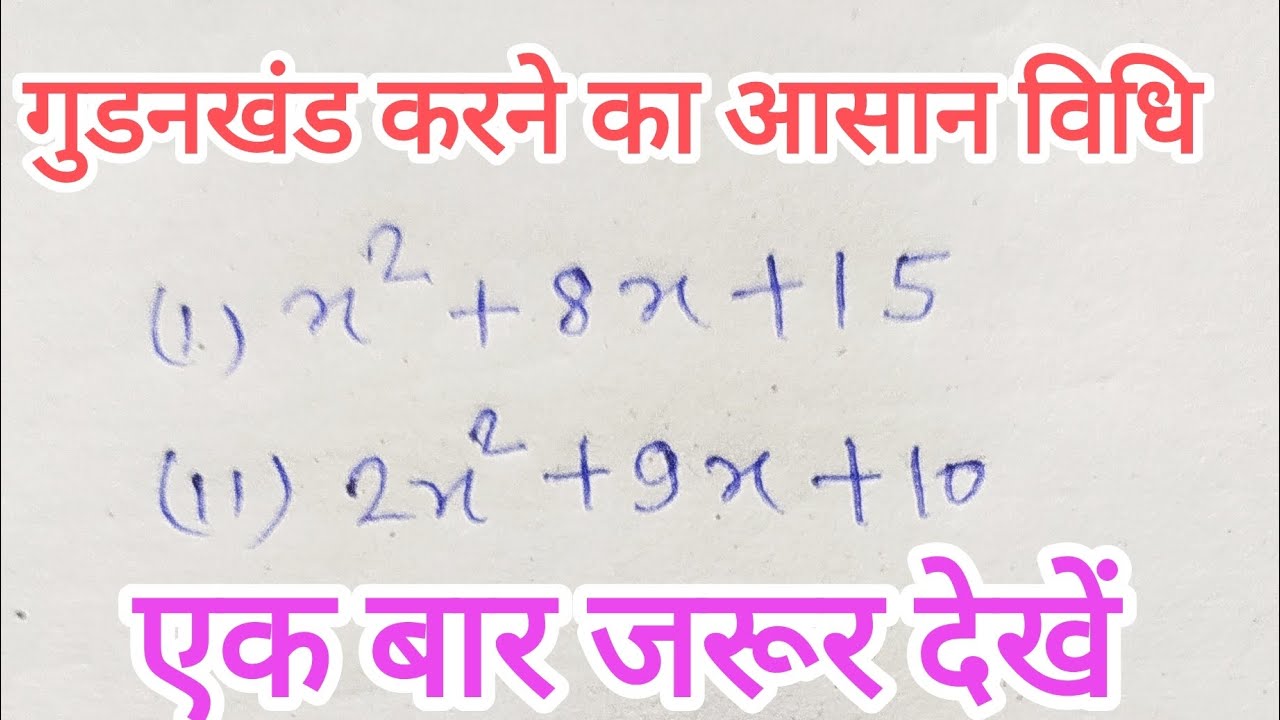 गुडनखंड करने का आसान विधि
(I) x² + 8x + 15
(II) 2x² + 9x + 10
एक बार जरूर देखें